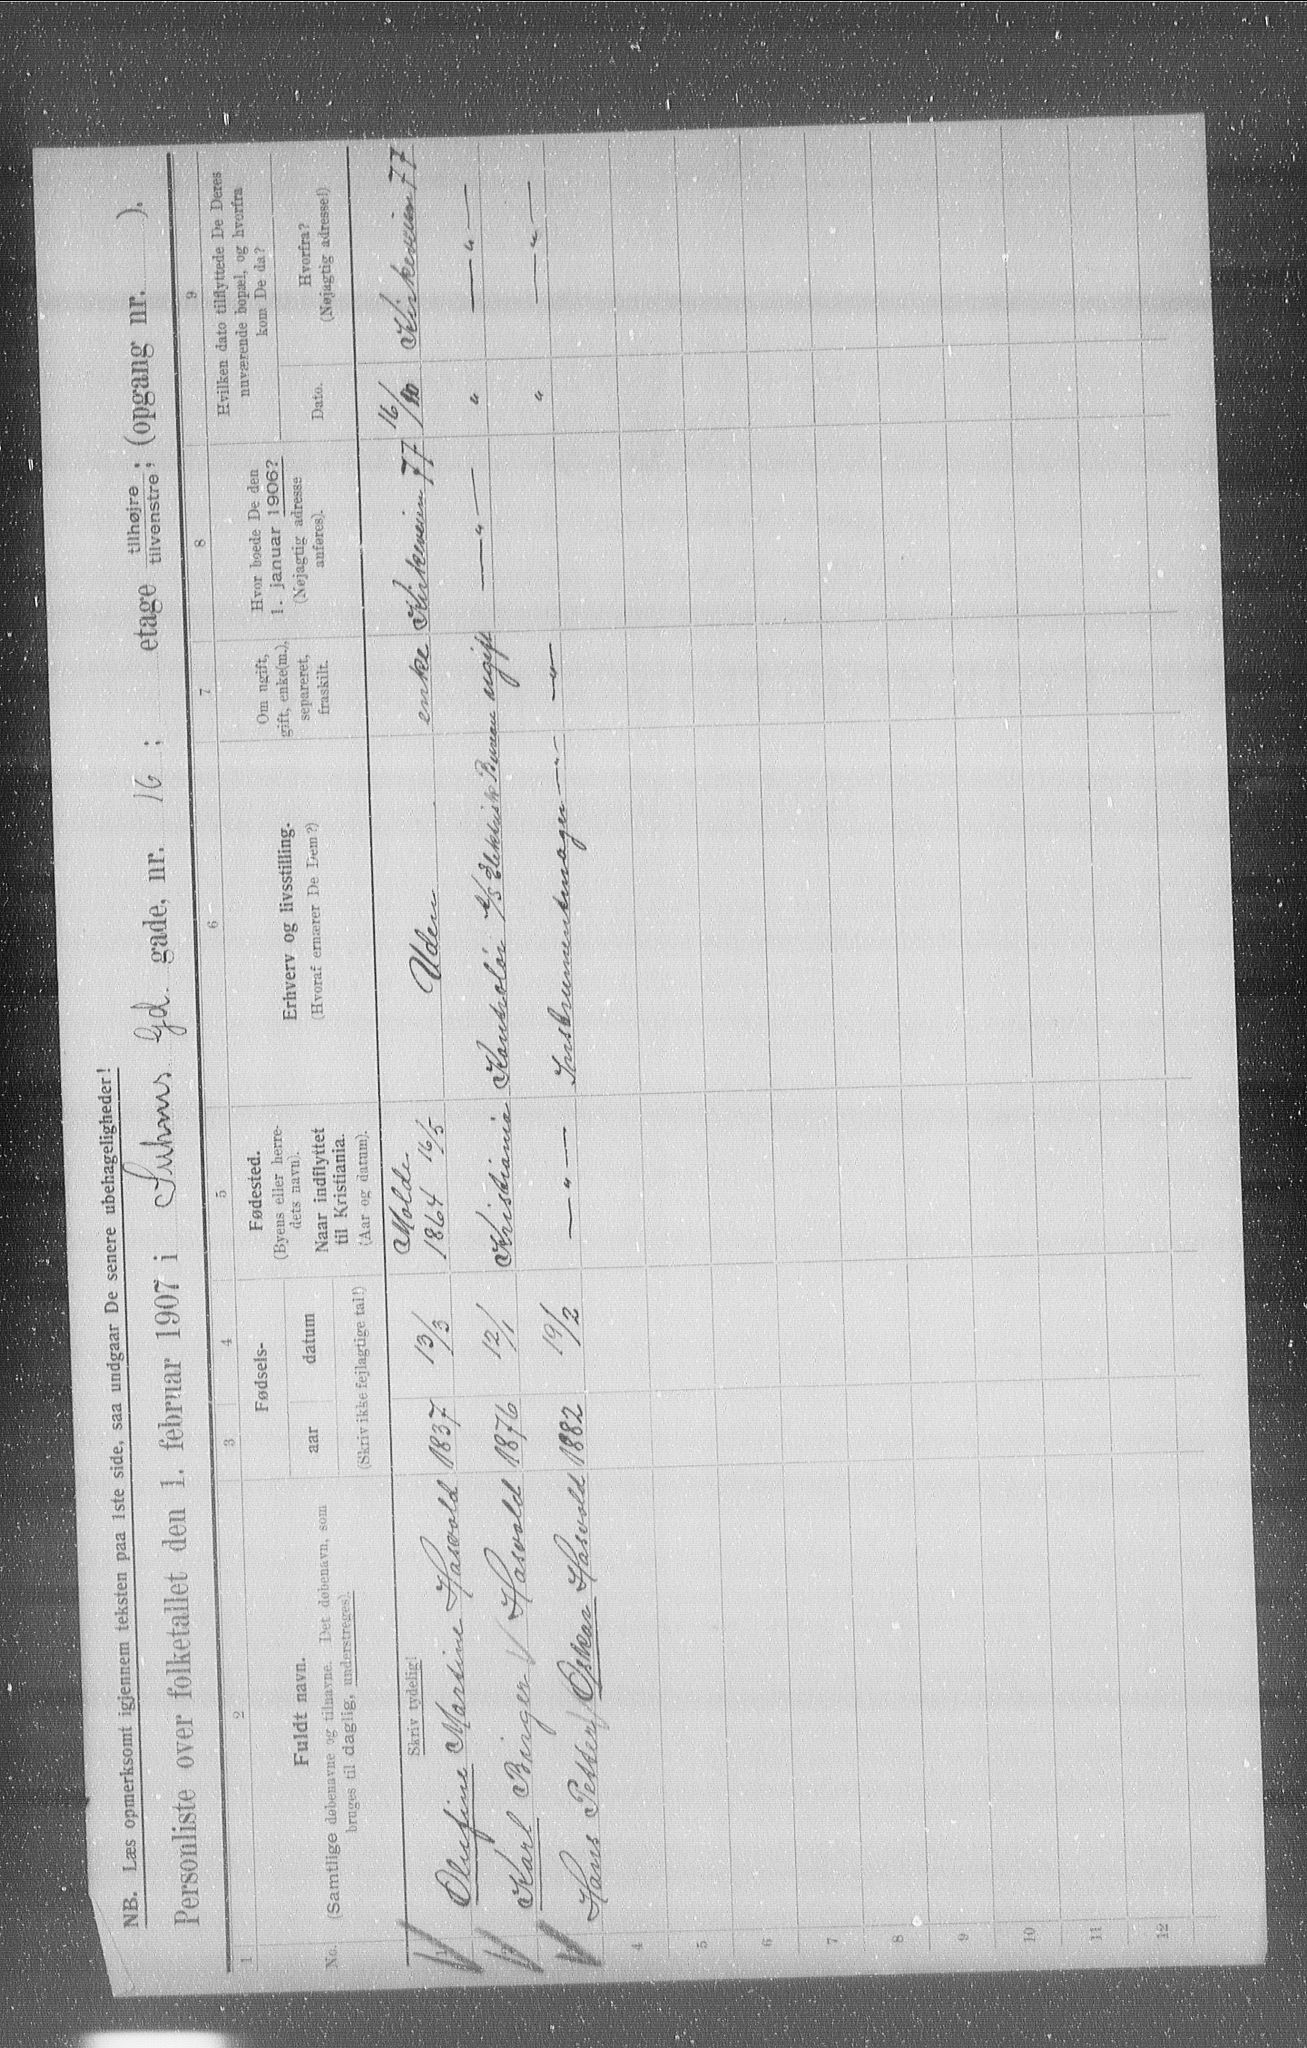 NB. Læs opmerksomt igjennem teksten paa 1ste side, saa undgaar De senere ubehageligheder!
Personliste over folketallet den 1. februar 1907 i Suhms Gd. gade, nr. 16 ; etage tilhøjre ; tilvenstre ; (opgang nr. ).
1 2 3 4 5 6 7 8 9
No.
Fuldt navn.
(Samtlige døbenavne og tilnavne. Det døbenavn, som
bruges til daglig, understreges).
Fødsels-
aar datum
(Skriv ikke fejlagtige tal!)
Fødested.
(Byens eller herre-
dets navn).
Naar indflyttet
til Kristiania.
(Aar og datum).
Erhverv og livsstilling.
(Hvoraf ernærer De Dem?)
Om ugift,
gift, enke(m.),
separeret,
fraskilt.
Hvor boede De den
1. januar 1906?
(Nøjagtig adresse
anføres).
Hvilken dato tilflyttede De Deres
nuværende bopæl, og hvorfra
kom De da?
Dato.
Hvorfra?
(Nøjagtig adresse!)
Skriv tydelig!
Molde
1 Olufine Martine Hasvold 1837 13/3 1864 16/5 Uden enke Kirkeveien 77 16/10 Kirkeveien 77
Karl Birger Hasvold 1876 12/1 Kristiania Kontrolør A/S Elektrisk Bureau ugift — " — " — " —
Hans Petter Oskar Hasvold 1882 19/2 — " — Instrumentmager — " — — " — " — " —
4
5
6
7
8
9
10
11
12